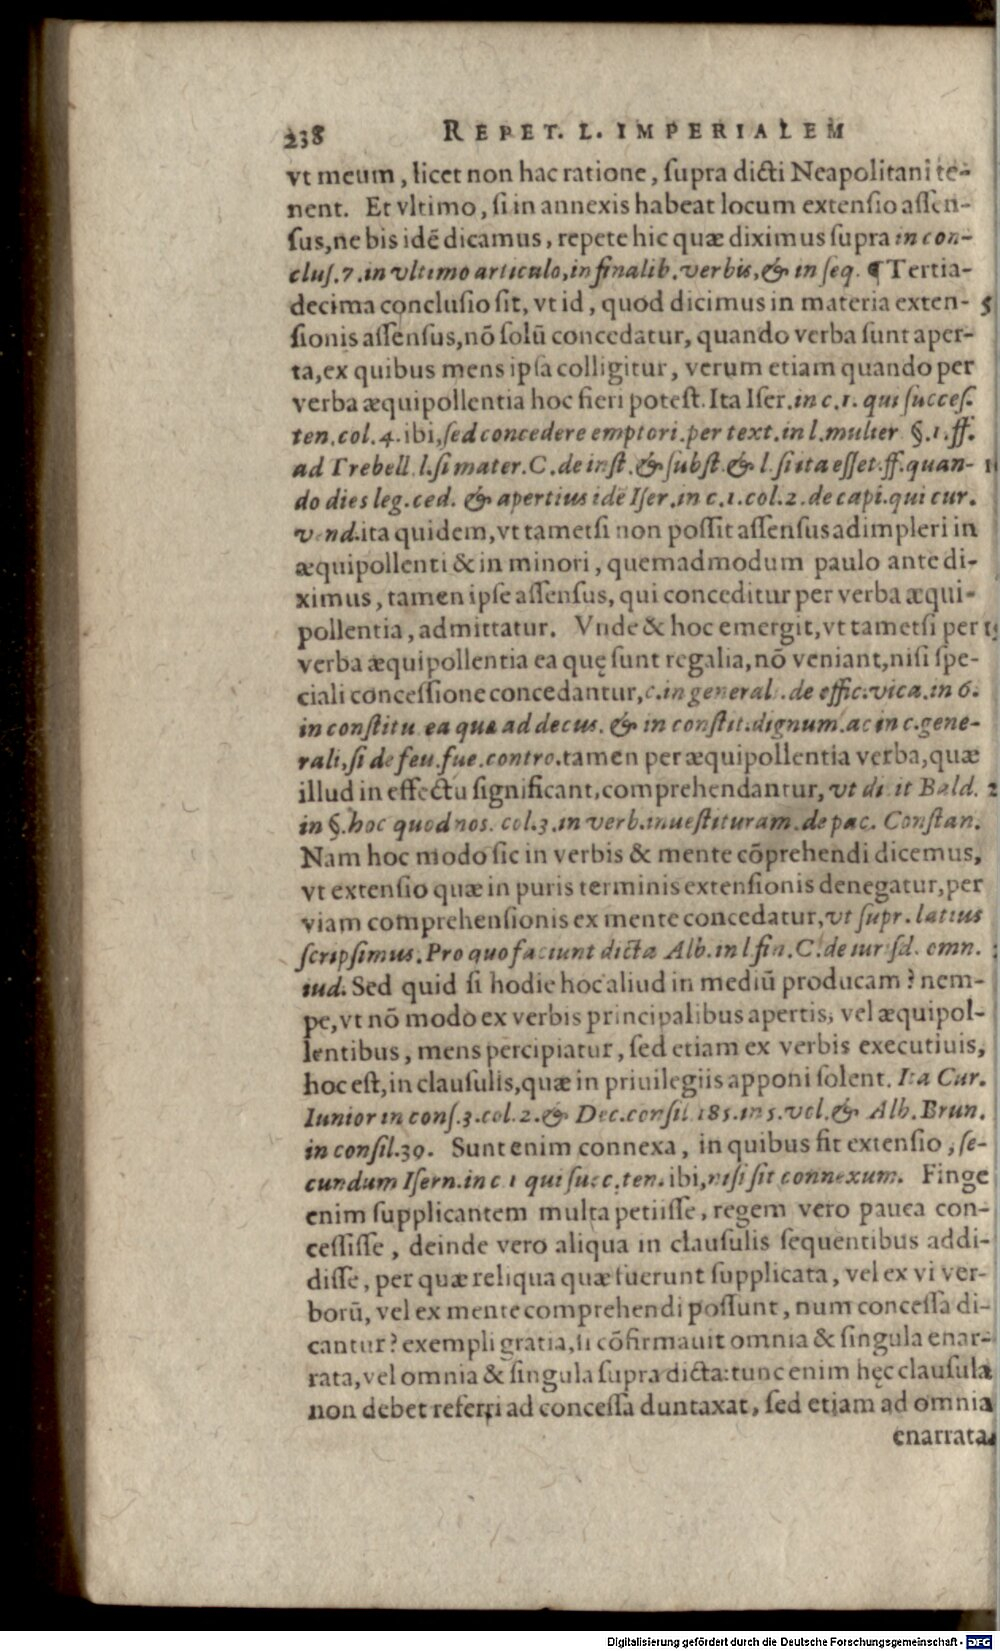 238 REPET. L. IMPERIALEM
vt meum, licet non hac ratione, ſupra dicti Neapolitani te-
nent. Et vltimo, ſi in annexis habeat locum extenſio aſſen-
ſus, ne bis idē dicamus, repete hic quæ diximus ſupra in con-
cluſ.7. in vltimo articulo, in finalib. verbis, & in ſeq. ¶ Tertia-
decima concluſio ſit, vt id, quod dicimus in materia exten- 5
ſionis aſſenſus, nō ſolū concedatur, quando verba ſunt aper-
ta, ex quibus mens ipſa colligitur, verum etiam quando per
verba æquipollentia hoc fieri poteſt. Ita Iſer. in c. 1. qui ſucceſ.
ten. col. 4. ibi, ſed concedere emptori. per text. in l. mulier §. 1. ff.
ad Trebell. l. ſi mater. C. de inſt. & ſubſt. & l. ſi ita eſſet. ff. quan-
do dies leg. ced. & apertius idē Iſer. in c. 1. col. 2. de capi. qui cur.
vend. ita quidem, vt tametſi non poſſit aſſenſus adimpleri in
æquipollenti & in minori, quemadmodum paulo ante di-
ximus, tamen ipſe aſſenſus, qui conceditur per verba æqui-
pollentia, admittatur. Vnde & hoc emergit, vt tametſi per
verba æquipollentia ea quę ſunt regalia, nō veniant, niſi ſpe-
ciali conceſſione concedantur, c. in general. de offic. vica. in 6.
in conſtitu. ea quæ ad decus. & in conſtit. dignum. ac in c. gene-
rali, ſi de feu. fue. contro. tamen per æquipollentia verba, quæ
illud in effectu ſignificant, comprehendantur, vt dicit Bald.
in §. hoc quod nos. col. 3. in verb. inueſtituram. de pac. Conſtan.
Nam hoc modo ſic in verbis & mente cōprehendi dicemus,
vt extenſio quæ in puris terminis extenſionis denegatur, per
viam comprehenſionis ex mente concedatur, vt ſupr. latius
ſcripſimus. Pro quo faciunt dicta Alb. in l. fin. C. de iuriſd. omn.
iud. Sed quid ſi hodie hoc aliud in mediū producam? nem-
pe, vt nō modo ex verbis principalibus apertis, vel æquipol-
lentibus, mens percipiatur, ſed etiam ex verbis executiuis,
hoc eſt, in clauſulis, quæ in priuilegiis apponi ſolent. Ita Cur.
Iunior in conſ. 3. col. 2. & Dec. conſil. 185. in 5. vol. & Alb. Brun.
in conſil. 39. Sunt enim connexa, in quibus fit extenſio, ſe-
cundum Iſern. in c. 1 qui ſucc. ten. ibi, niſi ſit connexum. Finge
enim ſupplicantem multa petiiſſe, regem vero pauca con-
ceſſiſſe, deinde vero aliqua in clauſulis ſequentibus addi-
diſſe, per quæ reliqua quæ fuerunt ſupplicata, vel ex vi ver-
borū, vel ex mente comprehendi poſſunt, num conceſſa di-
cantur? exempli gratia, ſi cōfirmauit omnia & ſingula enar-
rata, vel omnia & ſingula ſupra dicta: tunc enim hęc clauſula
non debet referri ad conceſſa duntaxat, ſed etiam ad omnia
enarrata
Digitalisierung gefördert durch die Deutsche Forschungsgemeinschaft - DFG